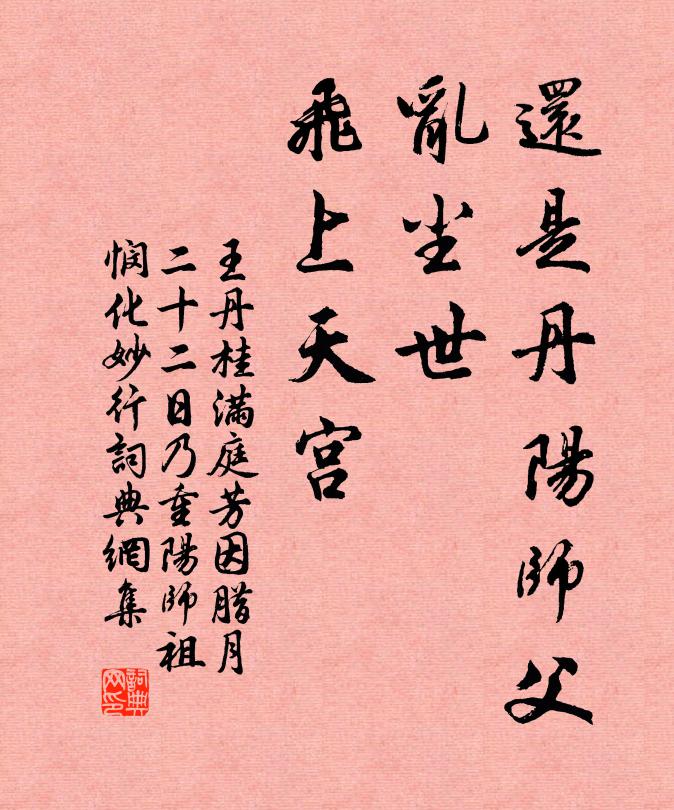 還是丹陽師父
亂塵世
飛上天宮
王丹桂滿庭芳因腊月
二十二日乃重陽師祖
憫化妙行詞典網集
詞典网印